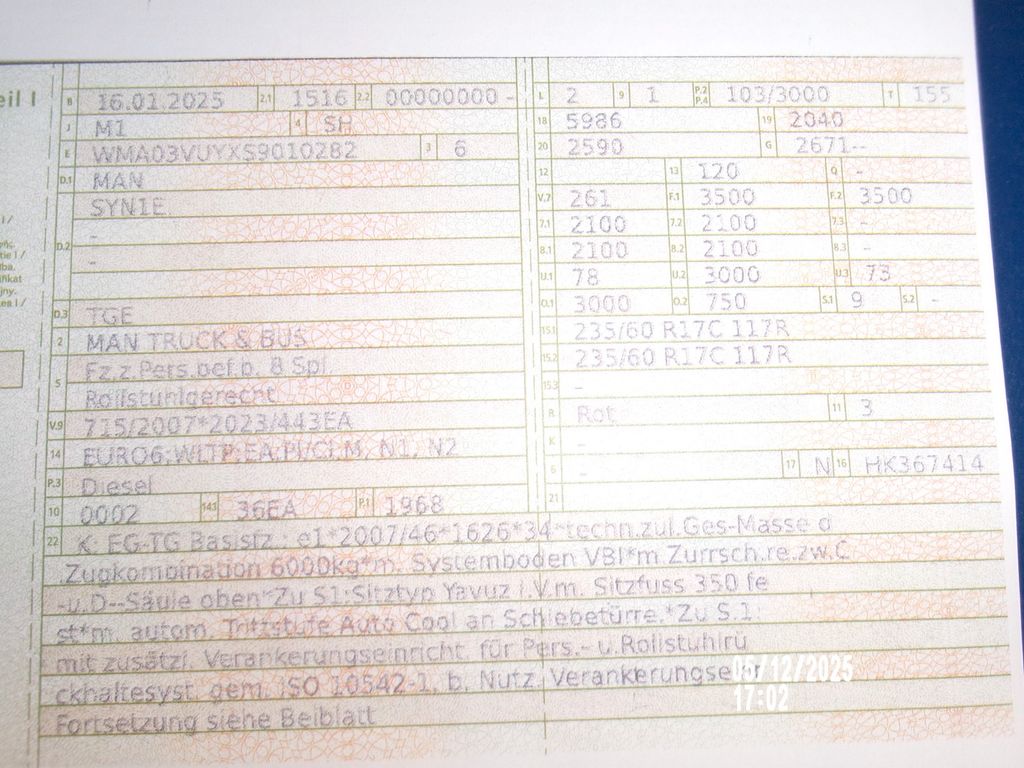 eil I
B 16.01.2025 2.1 1516 2.2 00000000 -
J M1 4 SH
E WMA03VUYXS9010282 3 6
D.1 MAN
SYNIE
-
D.2
-
D.3 TGE
2 MAN TRUCK & BUS
5 Fz.z.Pers.bef.b. 8 Spl.
Rollstuhlgerecht
V.9 715/2007*2023/443EA
14 EURO6;WLTP;EA;PI/CI,M, N1, N2
P.3 Diesel
10 0002 14.1 36EA P.1 1968
L 2 9 1 P.2 P.4 103/3000 T 155
18 5986 19 2040
20 2590 G 2671--
12 13 120 Q -
V.7 261 F.1 3500 F.2 3500
7.1 2100 7.2 2100 7.3 -
8.1 2100 8.2 2100 8.3 -
U.1 78 U.2 3000 U.3 73
O.1 3000 O.2 750 S.1 9 S.2 -
15.1 235/60 R17C 117R
15.2 235/60 R17C 117R
15.3 -
R Rot 11 3
K -
6 - 17 N 16 HK367414
21
22 K: EG-TG Basisfz.: e1*2007/46*1626*34*techn.zul.Ges-Masse d
.Zugkombination 6000kg*m. Systemboden VBI*m.Zurrsch.re.zw.C
-u.D--Säule oben*Zu S1:Sitztyp Yavuz i.V.m. Sitzfuss 350 fe
st*m. autom. Trittstufe Auto Cool an Schiebetürre.*Zu S.1:
mit zusätzl. Verankerungseinricht. für Pers.- u.Rollstuhlrü
ckhaltesyst. gem. ISO 10542-1, b. Nutz. Verankerungse
Fortsetzung siehe Beiblatt
05/12/2025
17:02